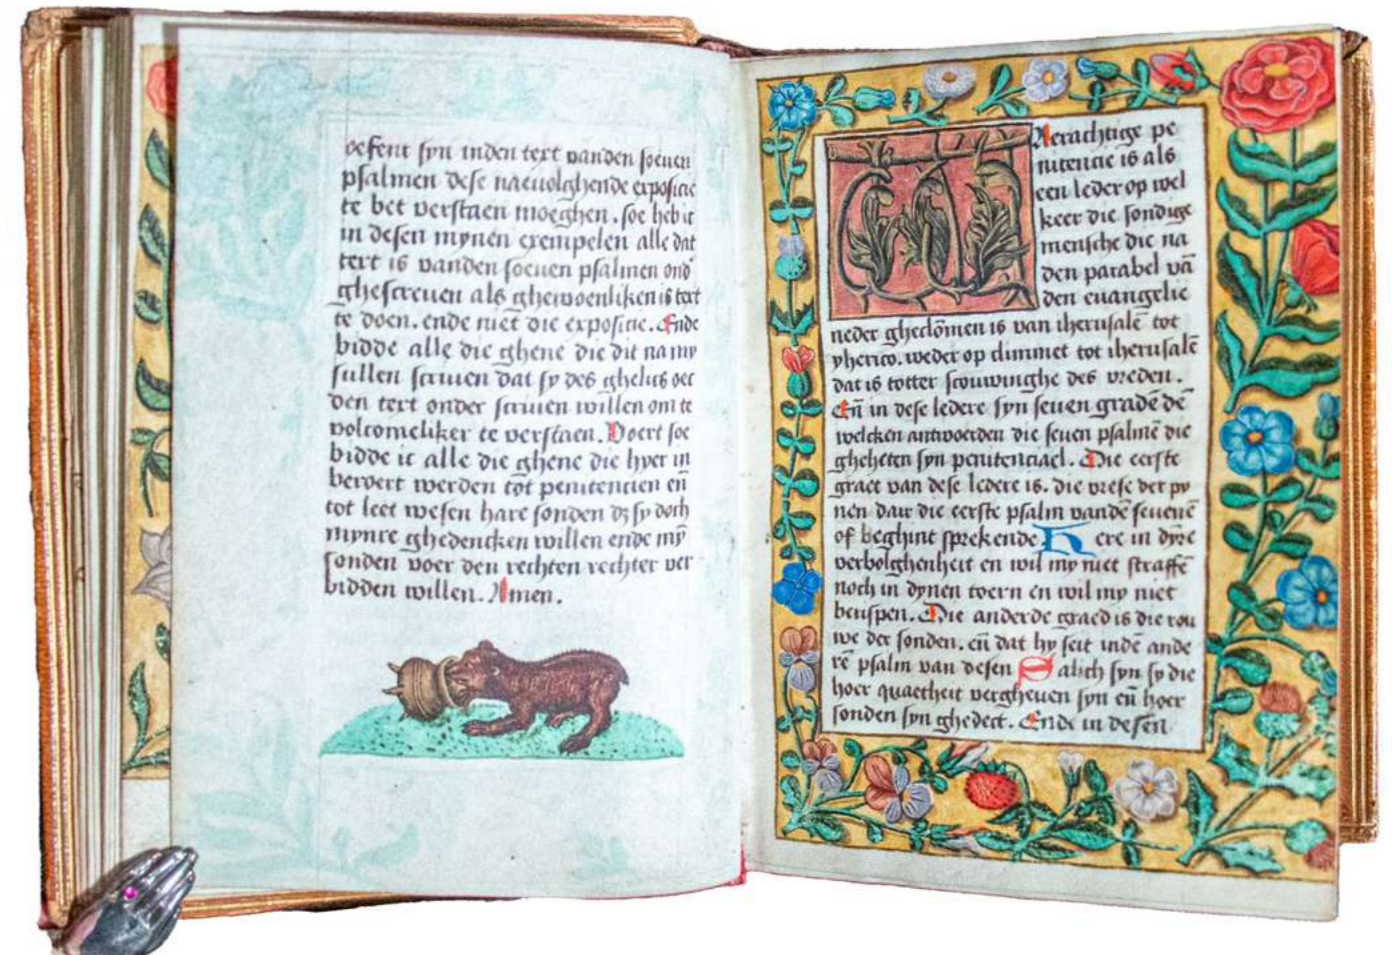 oefent syn inden text vanden soeuen
psalmen dese naeuolghende expositie
te bet verstaen moeghen. soe heb ic
in desen mynen exempelen alle dat
text is vanden soeuen psalmen ond
ghescreuen als ghewoenliken is text
te doen. ende niet die expositie. Ende
bidde alle die ghene die dit na my
sullen scriuen dat sy des ghelijcs oec
den text onder scriuen willen om te
volcomeliker te verstaen. Voert soe
bidde ic alle die ghene die hyer in
beroert werden tot penitencien eñ
tot leet wesen hare sonden dz sy doch
mynre ghedencken willen ende mȳ
sonden voer den rechten rechter ver
bidden willen. Amen.
Werachtige pe
nitencie is als
een leder op wel
keer die sondige
mensche die na
den parabel vā
den euangelie
neder gheclōmen is van iherusalē tot
yherico. weder op climmet tot iherusalē
dat is totter scouwinghe des vreden.
Eñ in dese ledere syn seuen gradē dē
welcken antwoerden die seuen psalmē die
gheheten syn penitenciael. Die eerste
graet van dese ledere is. die vrese der py
nen dair die eerste psalm vandē seuenē
of beghint sprekende Here in dyre
verbolghenheit en wil my niet straffē
noch in dynen toern en wil my niet
beuspen. Die anderde graed is die rou
we der sonden. eñ dat hy seit indē ande
rē psalm van desen Salich syn sy die
hoer quaetheit vergheuen syn eñ hoer
sonden syn ghedect. Ende in desen